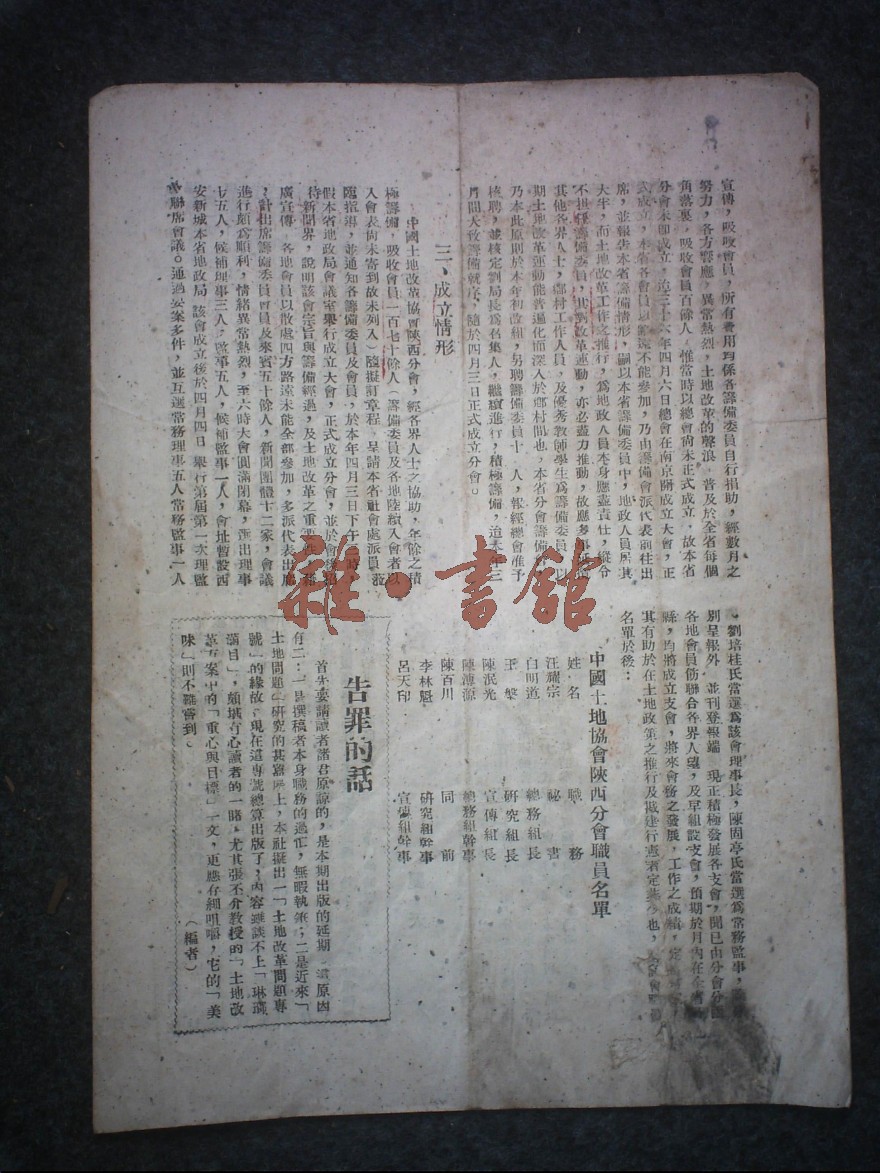 宣傳，吸收會員，所有費用均係各籌備委員自行捐助，經數月之
努力，各方響應，異常熱烈，土地改革的聲浪，普及於全省每個
角落裏，吸收會員百餘人，惟當時以總會尚未正式成立，故本省
分會未卽成立，迨三十六年四月六日總會在南京開成立大會，正
式成立，本省各會員以路遠不能參加，乃由籌備會派代表前往出
席，並報告本省籌備情形，嗣以本省籌備委員中，地政人員居其
大半，而土地改革工作之推行，爲地政人員本身應盡責任，縱令
不担任籌備委員，其對改革運動，亦必盡力推動，故應多
其他各界人士，鄉村工作人員，及優秀教師學生爲籌備委員，以
期土地改革運動能普遍化而深入於鄉村間也，本省分會籌備
乃本此原則於本年初改組，另聘籌備委員十 人，報經總會准予
核聘，並核定劉局長爲召集人，繼續進行，積極籌備，迨本年三
月間大致籌備就序，隨於四月三日正式成立分會。
三、成立情形
中國土地改革協會陝西分會，經各界人士之協助，年餘之積
極籌備，吸收會員一百七十餘人（籌備委員及各地陸續入會者以
入會表尚未寄到故未列入）隨擬訂章程，呈請本省社會處派員蒞
臨指導，並通知各籌備委員及會員，於本年四月三日下午二時
假本省地政局會議室舉行成立大會，正式成立分會，並於會後招
待新聞界，說明該會宗旨與籌備經過，及土地改革之重要性
廣宣傳，各地會員以散處四方路遠未能全部參加，多派代表出席
，計出席籌備委員會員及來賓五十餘人，新聞團體十二家，會議
進行頗爲順利，情緒異常熱烈，至六時大會圓滿閉幕，選出理事
十五人，候補理事三人，監事五人，候補監事一人，會址暫設西
安新城本省地政局，該會成立後於四月四日舉行第一屆第一次理監
事聯席會議。通過要案多件，並互選常務理事五人常務監事一人
，劉培桂氏當選爲該會理事長，陳固亭氏當選爲常務監事，
別呈報外，並刊登報端，現正積極發展各支會，聞已由分會分函
各地會員飭聯合各界人望，及早組設支會，預期於月內在全省
縣，均將成立支會，將來會務之發展，工作之成績，定
其有助於在土地政策之推行及戡建行憲者定
名單於後：
中國土地協會陝西分會職員名單
姓名 職務
汪耀宗 祕書
白明道 總務組長
王 研究組長
陳泯光 宣傳組長
陳溥源 總務組幹事
陳百川 同前
李林魁 研究組幹事
呂天印 宣傳組幹事
告罪的話
首先要請讀者諸君原諒的，是本期出版的延期，這原因
有二：一是撰稿者本身職務的過忙，無暇執筆；二是近來「
土地問題」研究的甚囂塵上，本社擬出一「土地改革問題專
號」的緣故，現在這專號總算出版了，內容雖談不上「琳瑯
滿目」，頗堪有心讀者的一睹。尤其張丕介教授的「土地改
革方案中的「重心與目標」一文，更應仔細咀嚼，它的「美
味」則不難嘗到。
（編者）
雜·書館